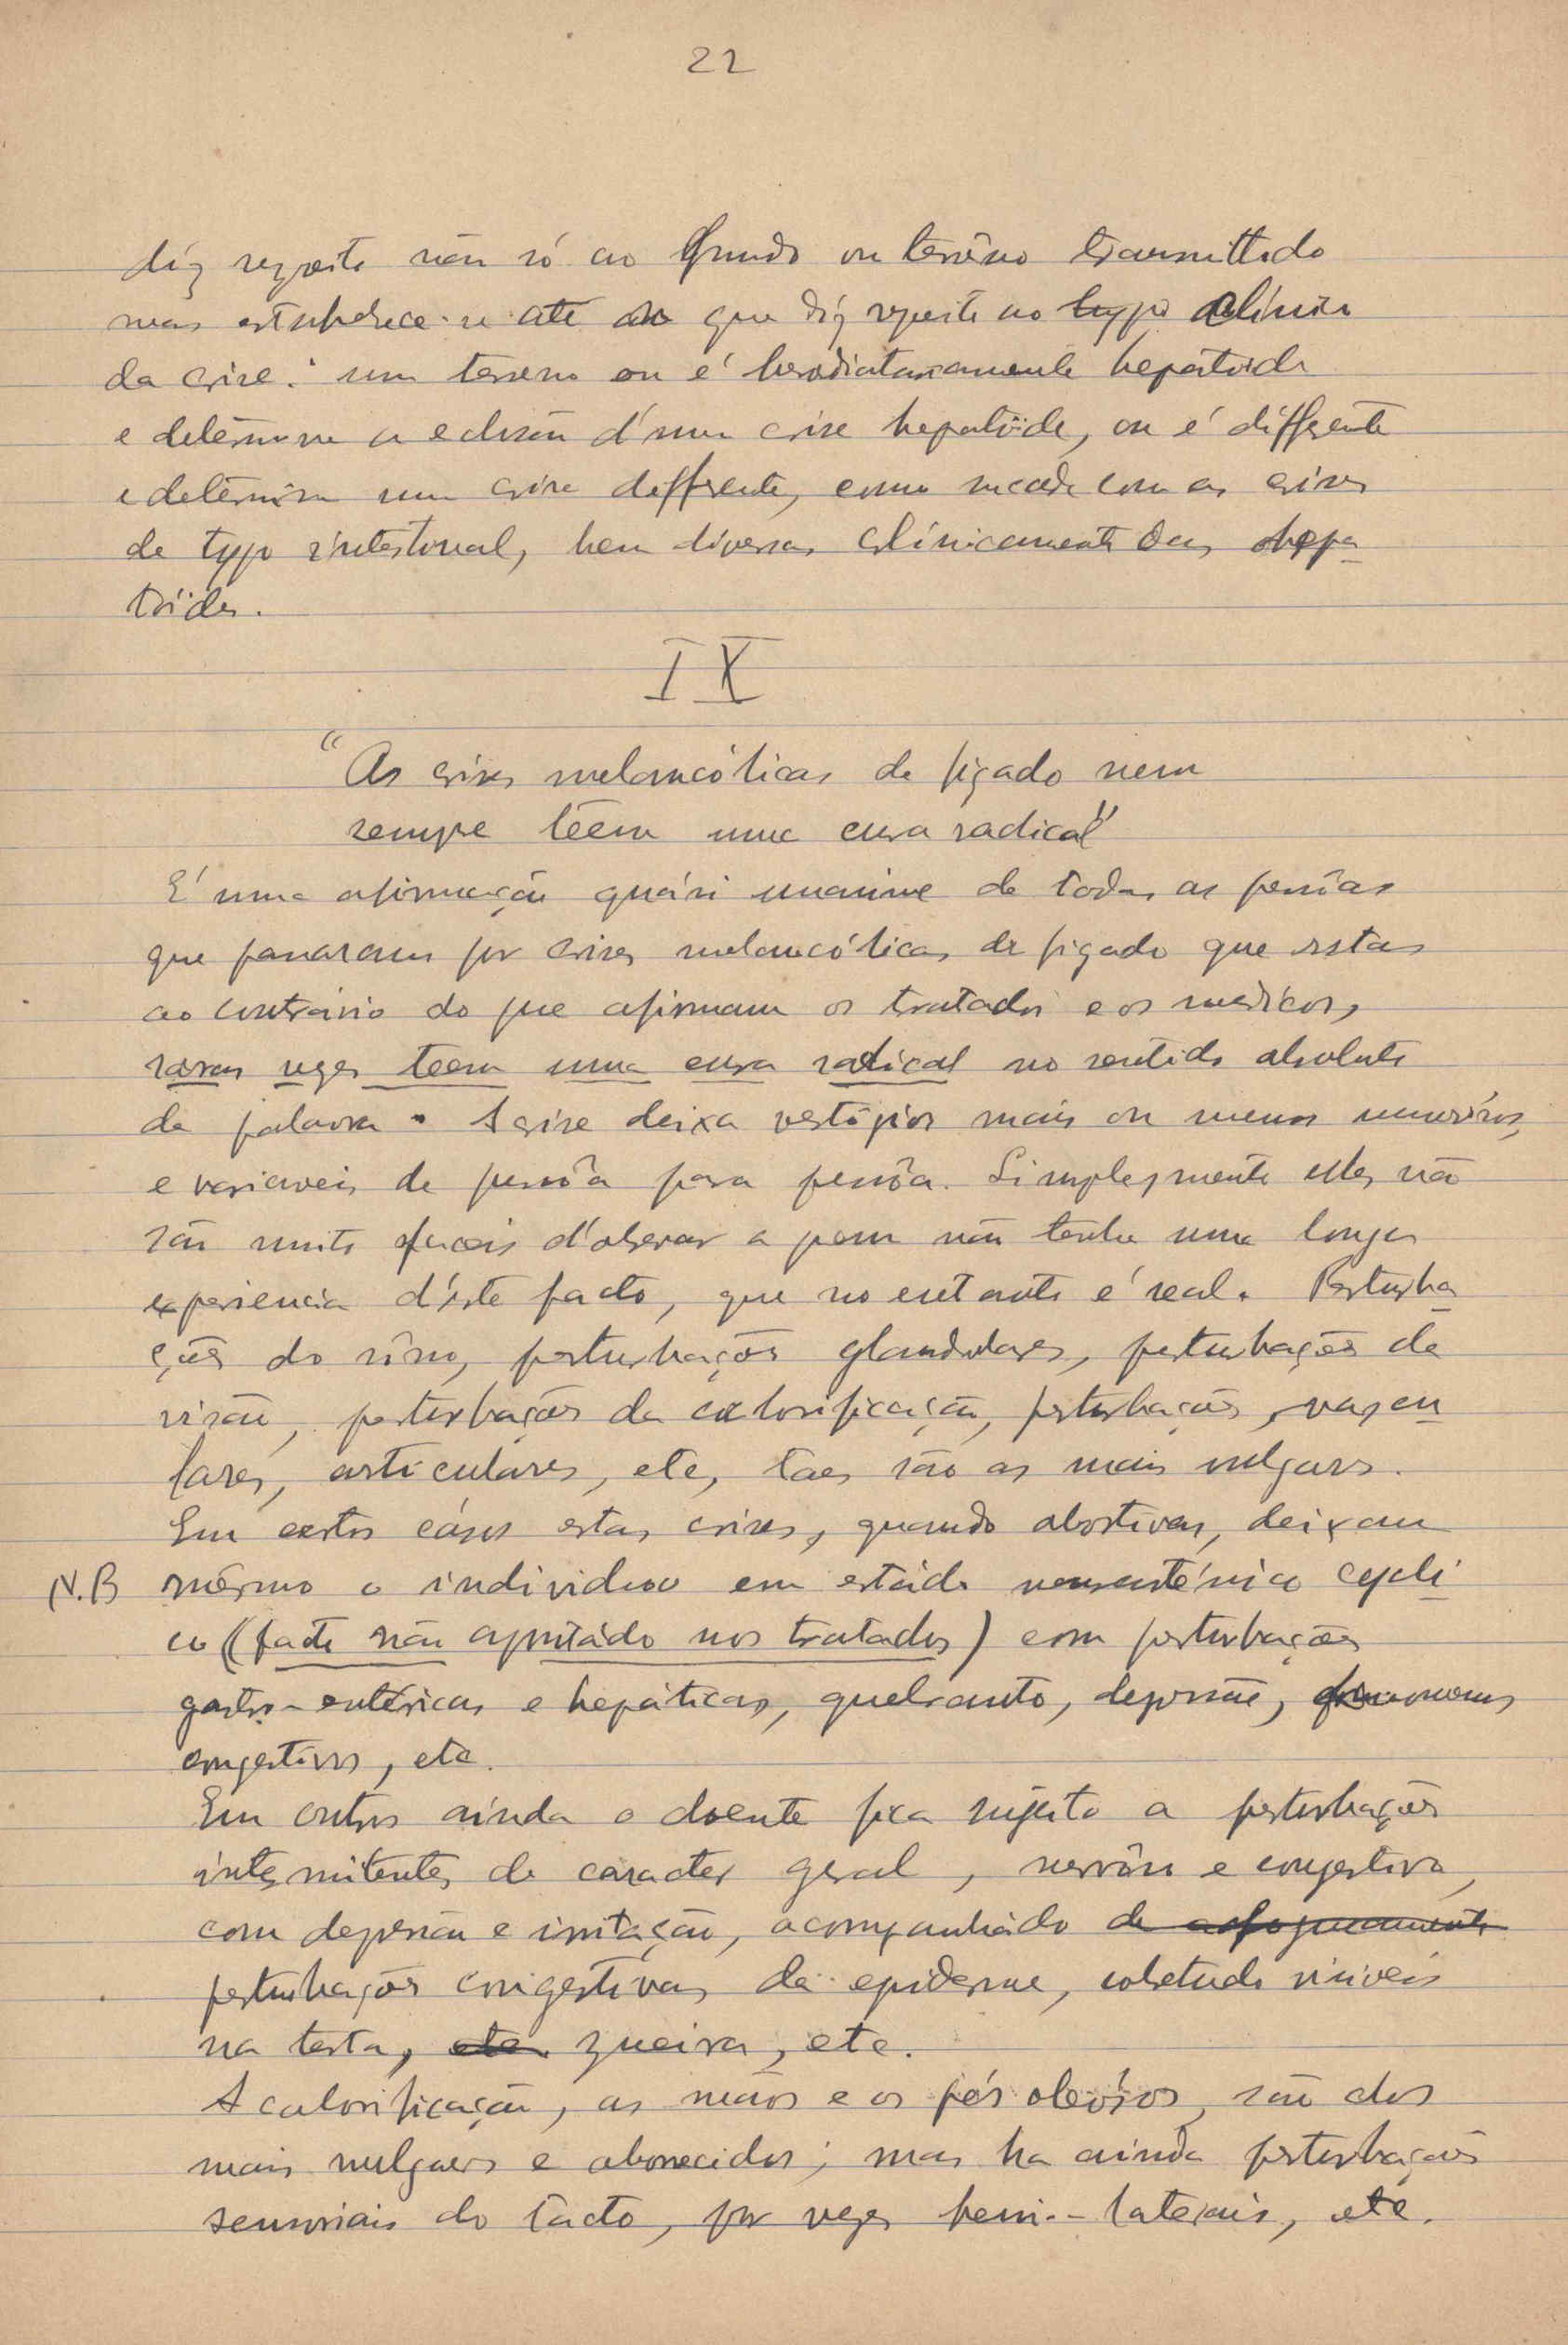 22
diz respeito não só ao fundo ou terrêno transmittido
mas estabelece-se até no que diz respeito ao typo clínico
da crise: um terreno ou é herediatariamente hepatoide
e determina a eclosão d'uma crise hepatoïde, ou é différente
e determina uma crise differente, como sucede com as crises
de typo intestinal, bem diversas clínicamente das hepa
tóides.
IX
"As crises melancóticas de figado nem
sempre têem uma cura radical"
É uma afirmação quási unanime de todas as pessôas
que passaram por crises melancóticas de figado que estas
ao contrário do que afirmam os tratados e os medicos,
raras vezes teem uma cura radical no sentido absoluto
da palavra. A crise deixa vestígios mais ou menos numerósos,
e variaveis de pessôa para pessôa. Simplesmente estes não
são muito faceis d'observar a quem não tenha uma longa
experiencia d'éste facto, que no entanto é real. Perturba
ções do sôno, perturbações glandulares, perturbações da
visão, perturbações da calorificação, perturbações, vascu
lares, articulares, etc, taes são as mais vulgares.
Em certos cásos estas crises, quando abortivas, deixam
N.B mêsmo o individuo em estádo neurasténico cycli
co (facto não apontádo nos tratados) com perturbações
gastro-entéricas e hepáticas, quebranto, depressão, fenomenos
congestivos, etc.
Em outros ainda o doente fica sujeito a perturbações
intermitentes de caracter geral, nervôso e congestivo,
com depressão e irritação, acompanhádo de afogueamento
perturbações congestivas da epiderme, sobretudo visiveis
na testa, etc. zueira, etc.
A calorificação, as mãos e os pés oleósos, são dos
mais vulgares e aborrecidos; mas ha ainda perturbações
sensoriais do tacto, por vezes hemi-laterais, etc.